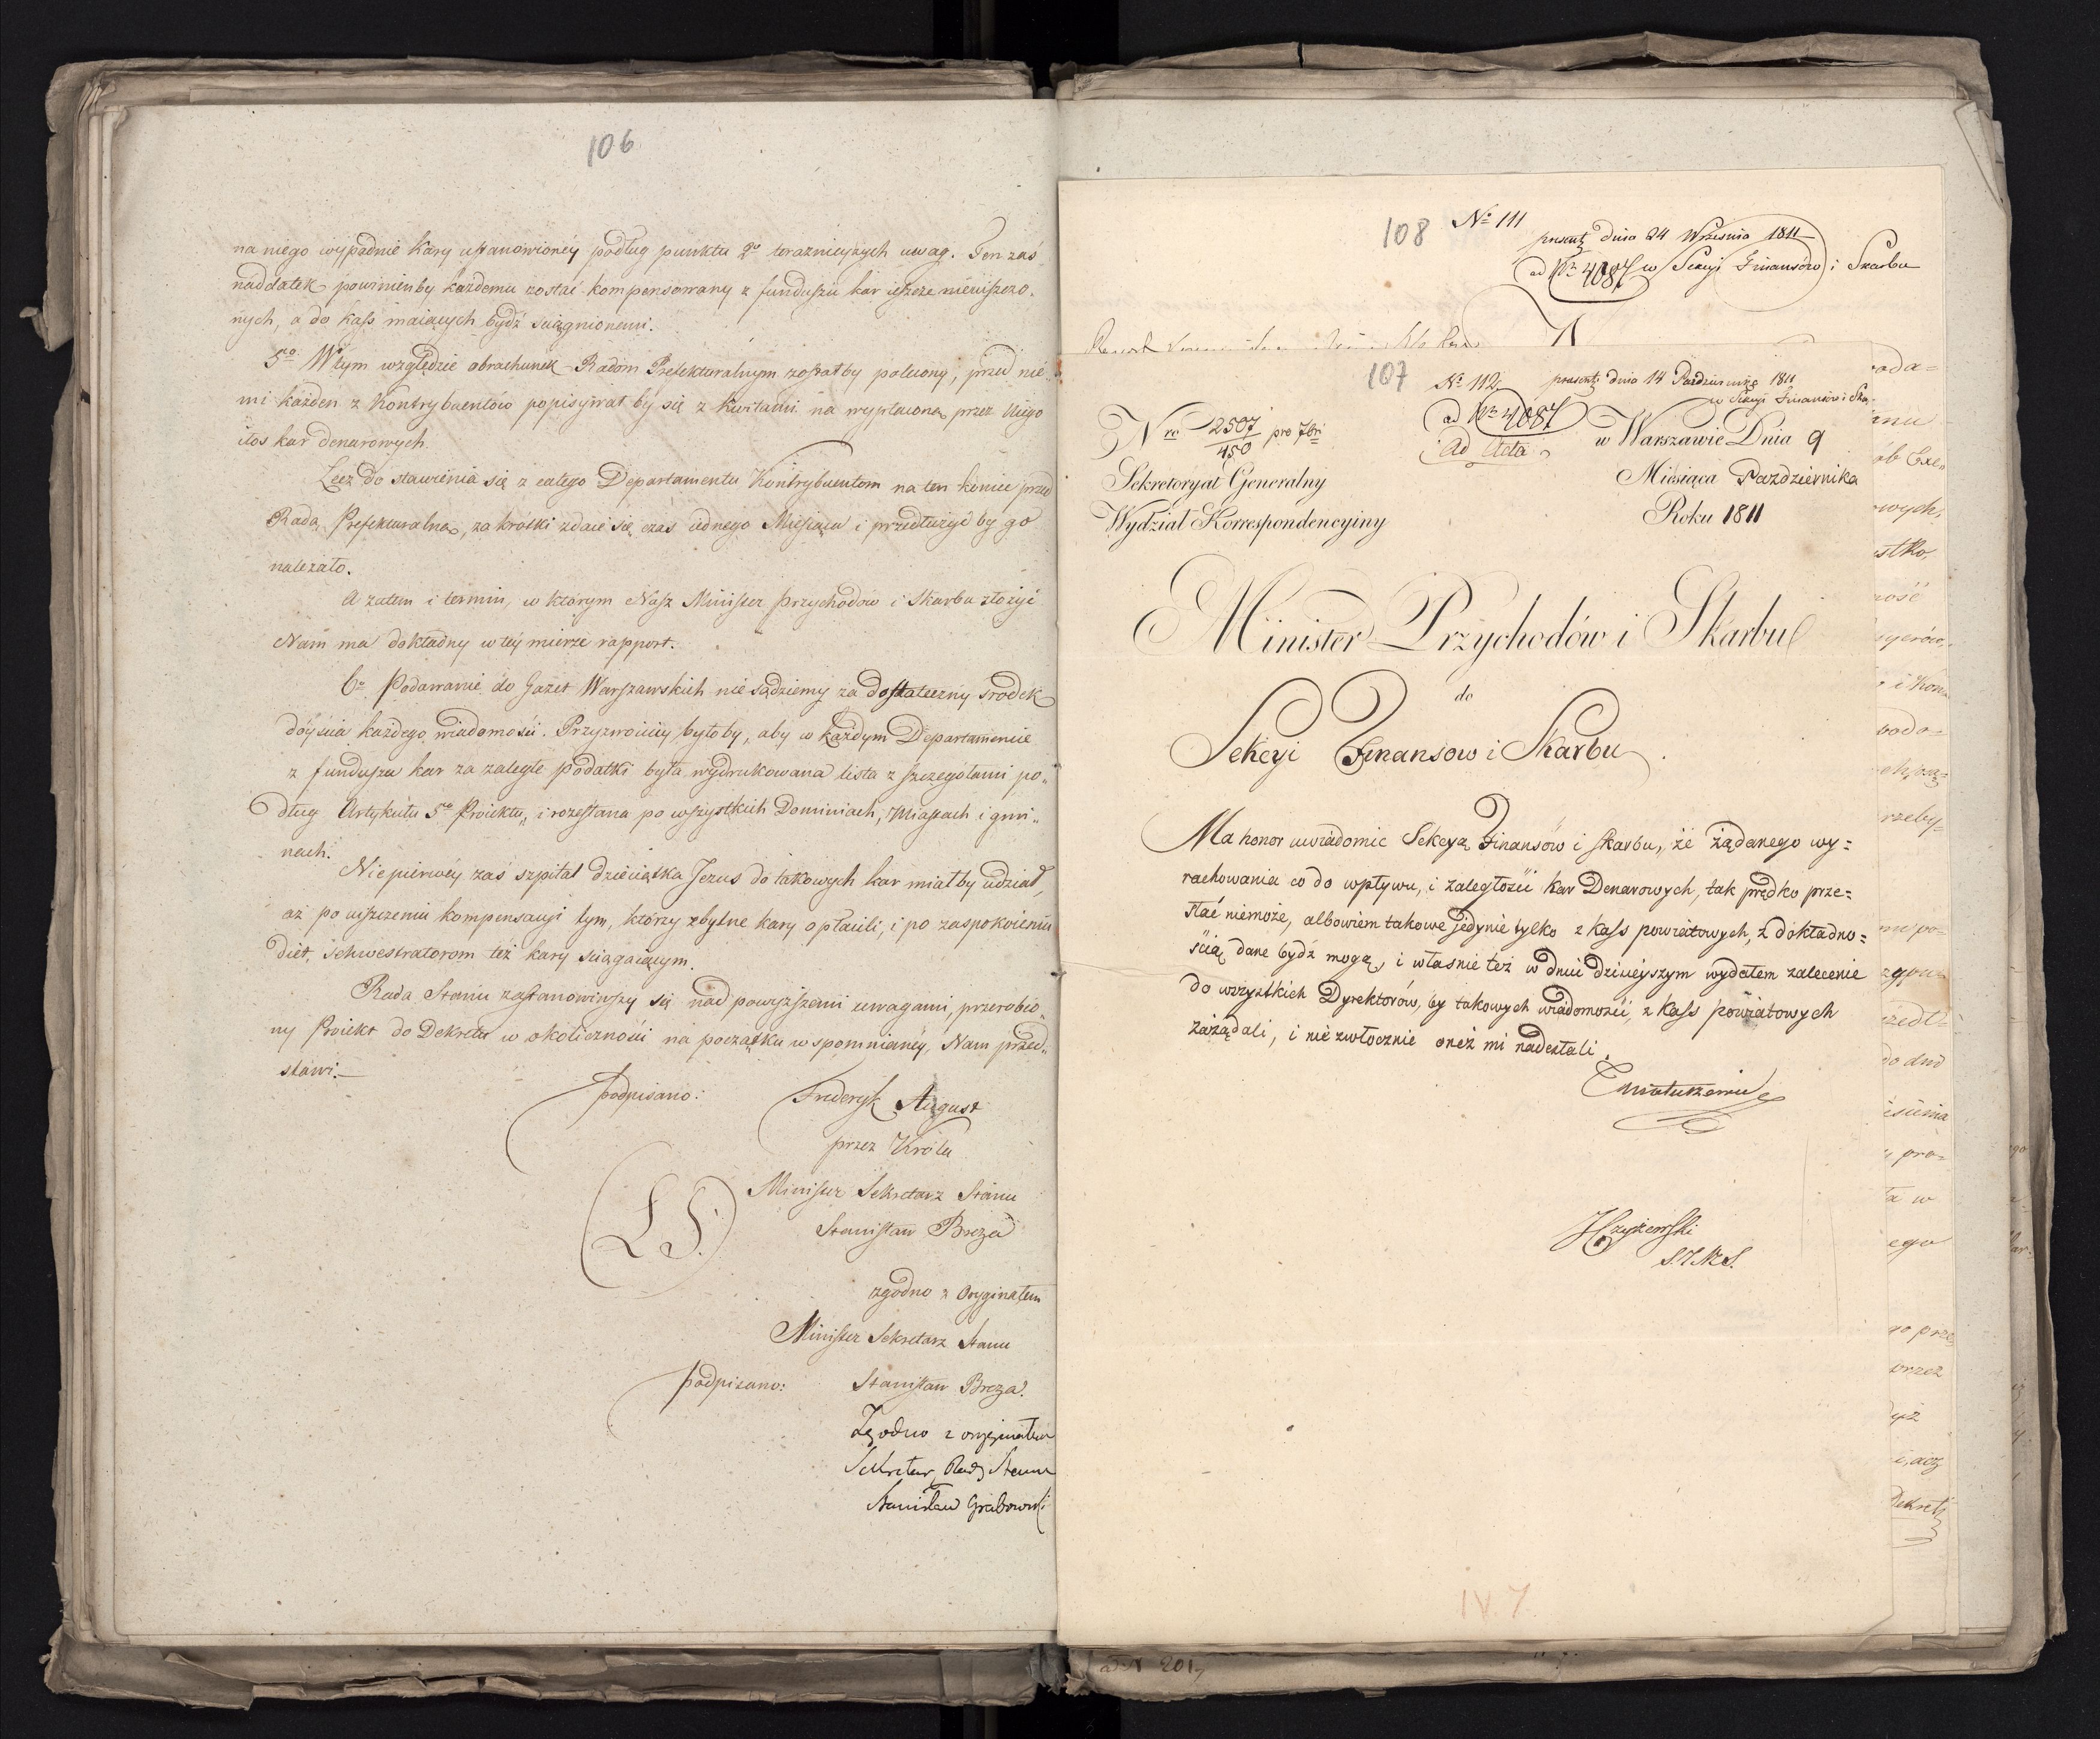 106
na niego wypadnie kary ustanowionéy podług punktu 2º teraznieyszych uwag. Ten zaś
naddatek powinienby każdemu zostać kompensowany z funduszu kar ieszcze nieuiszczo„
nych, a do kass maiących bydź sciągnionemi.
5to W tym względzie obrachunek Radom Prefekturalnym zostałby polecony, przed nie„
mi każden z Kontrybuentów popisywał by się z kwitami na wypłacone przez niego
ilos kar denarowych.
Lecz do stawienia się z całego Departamentu Kontrybuentom na ten koniec przed
Radą Prefekturalną, za krótki zdaie się czas iednego Miesiąca i przedłużyć by go
należało.
A zatem i termin, w którym Nasz Minister Przychodów i Skarbu złożyć
Nam ma dokładny w téy mierze rapport.
6o Podawanie do Gazet Warszawskich nie sądziemy za dostateczny srodek
dóyscia każdego wiadomości. Przyzwoiciéy byłoby, aby w każdym Departamencie
z funduszu kar za zaległe podatki była wydrukowana lista z szczegółami po„
dług Artykułu 5go Proiektu„ i rozesłana po wszystkich Dominiach, Miastach i gmi„
nach.
Niepierwéy zaś szpital dzieciątka Jezus do takowych kar miałby udział,
aż po uiszczeniu kompensacyi tym, którzy zbytne kary opłacili, i po zaspokoieniu
diet, sekwestratorom też kary sciągaiącym.
Rada Stanu zastanowiwszy się nad powyższemi uwagami, przerobio„
ny Proiekt do Dekretu w okoliczności na początku wspomnianéy, Nam przed„
stawi.—
podpisano: Fryderyk August
przez Króla
Minister Sekretarz Stanu
LS. Stanisław Breza
zgodno z Oryginałem
Minister Sekretarz Stanu
podpisano: Stanisław Breza.
Zgodno z oryginałem
Sekretarz Rady Stanu
Stanisław Grabowski
108 No 111
praesent dnia 24 Września 1811
ad Nr 4087 w Sekcyi Finansów i Skarbu
107 No 112. praesent dnia 14 Pazdziernika 1811
w Sekcyi Finansów i Ska.
ad Nr 4087
Ad Acta
Nro 2507/450 pro 7bri
w Warszawie Dnia 9
Sekretoryat Generalny
Miesiąca Pazdziernika
Wydział Korrespondencyiny
Roku 1811
Minister Przychodów i Skarbu
do
Sekcyi Finansow i Skarbu.
Ma honor uwiadomic Sekcyą Finansów i Skarbu, że żądanego wy=
rachowania co do wpływu, i zaległości kar Denarowych, tak prędko prze=
słać niemoże, albowiem takowe jedynie tylko z kass powiatowych, z dokładno=
ścią dane bydź mogą, i własnie też w dniu dzisieyszym wydałem zalecenie
do wszystkich Dyrektorów, by takowych wiadomości, z kass powiatowych
zażądali, i nie zwłocznie oneż mi nadesłali.
Matuszewic
Czyżewski
ad N 201